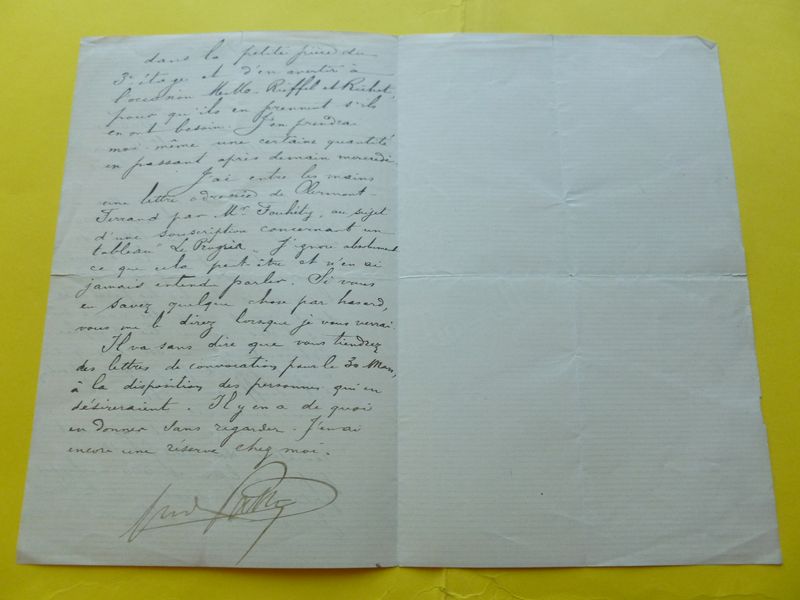 dans la petite pièce du
3e étage et d'en avertir à
l'occasion MM. Rieffel et Richet,
pour qu'ils en prennent s'ils
en ont besoin. J'en prendrai
moi-même une certaine quantité
en passant après demain mercredi.
J'ai entre les mains
une lettre adressée de Clermont-
Ferrand par Mr au sujet
d'une souscription concernant un
tableau " Le Progrès. J'ignore absolument
ce que cela peut-être et n'en ai
jamais entendu parler. Si vous
en savez quelque chose par hasard,
vous me le direz lorsque je vous verrai
Il va sans dire que vous tiendrez
des lettres de convocation pour le 30 Mars,
à la disposition des personnes qui en
désireraient. Il y en a de quoi
en donner sans regarder. J'en ai
encore une réserve chez moi.